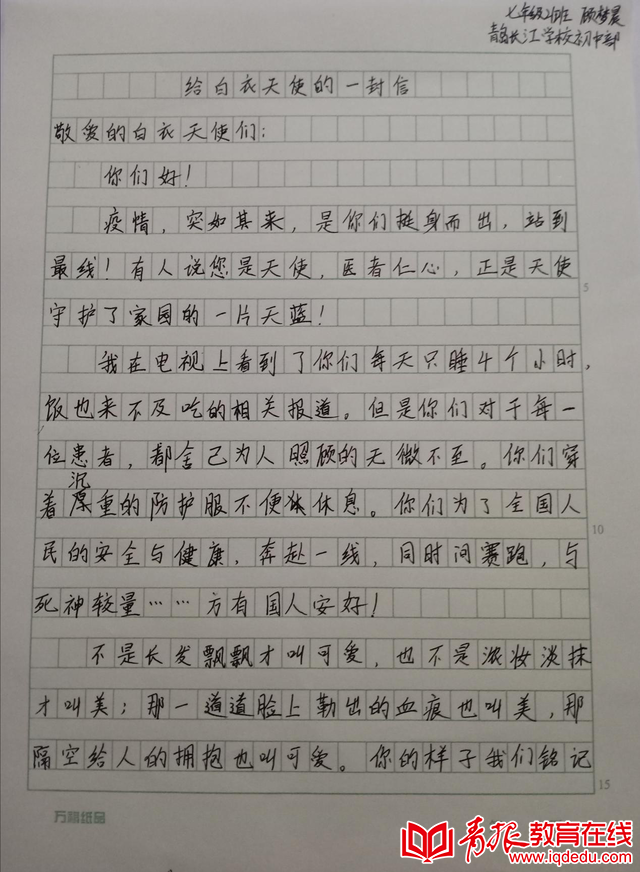 七年级2班 顾梦晨
青岛长江学校初中部
给白衣天使的一封信
敬爱的白衣天使们:
你们好!
疫情,突如其来,是你们挺身而出,站到
最线!有人说您是天使,医者仁心,正是天使
守护了家园的一片天蓝!
我在电视上看到了你们每天只睡4个小时,
饭也来不及吃的相关报道。但是你们对于每一
位患者,都舍己为人照顾的无微不至。你们穿
着沉重的防护服不便休息。你们为了全国人
民的安全与健康,奔赴一线,同时间赛跑,与
死神较量……方有国人安好!
不是长发飘飘才叫可爱,也不是浓妆淡抹
才叫美;那一道道脸上勒出的血痕也叫美,那
隔空给人的拥抱也叫可爱。你的样子我们铭记
5
10
15
万隔纸品
青报教育在线
www.iqdedu.com